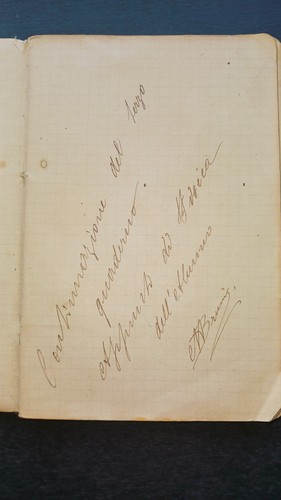 Continuazione del terzo
quaderno.
Appunti di Fisica
dell'Alunno
ABruni.